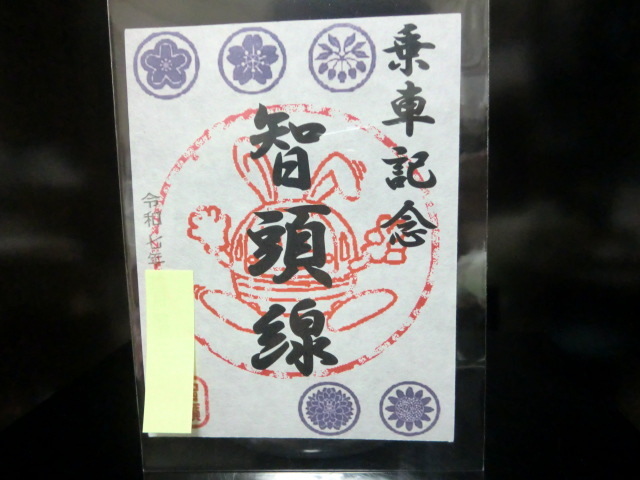 乗車記念
智頭線
令和七年